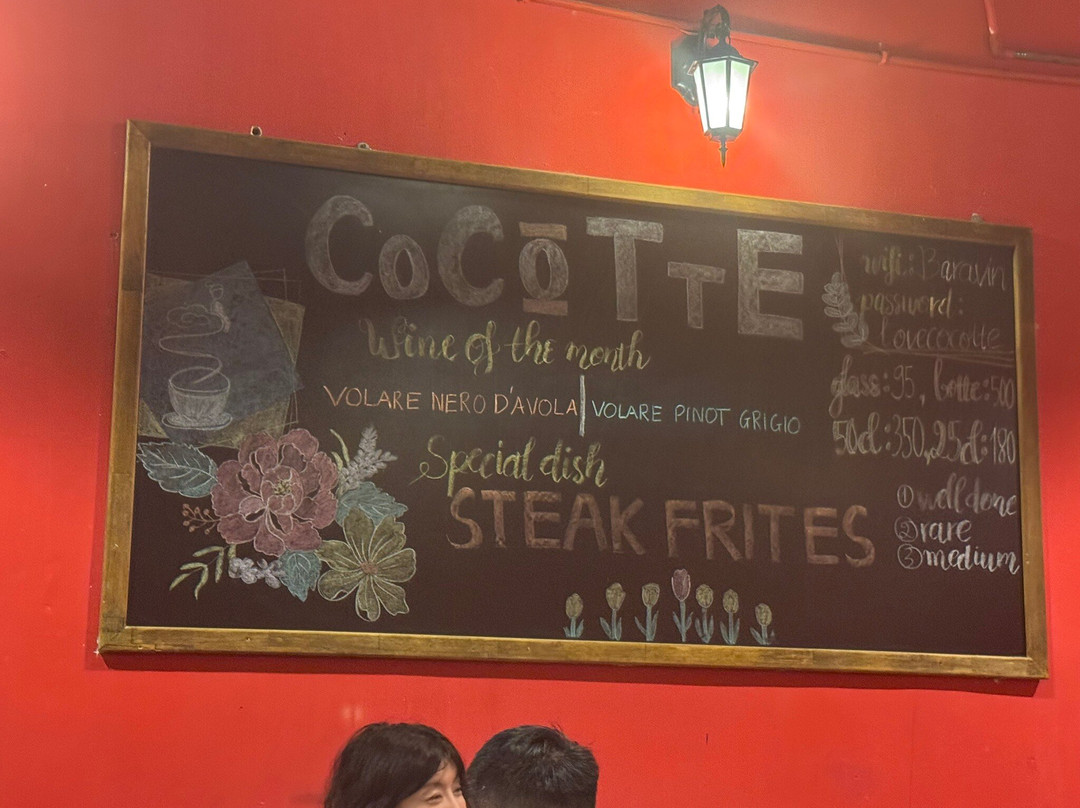 COCOTTE
Wine of the month
VOLARE NERO D'AVOLA | VOLARE PINOT GRIGIO
Special dish
STEAK FRITES
wifi: Baravin
password:
Lovecocotte
glass: 95, botte: 500
50cl: 350, 25cl: 180
① well done
② rare
③ medium